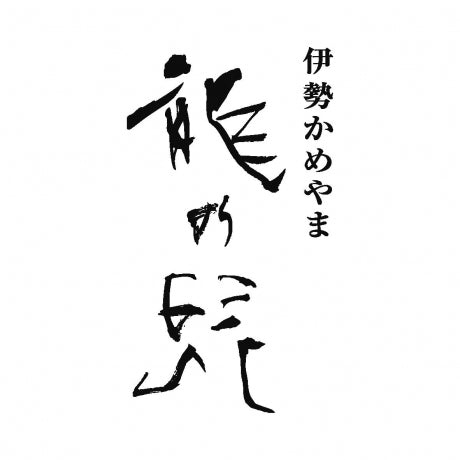 伊勢かめやま
龍の髭